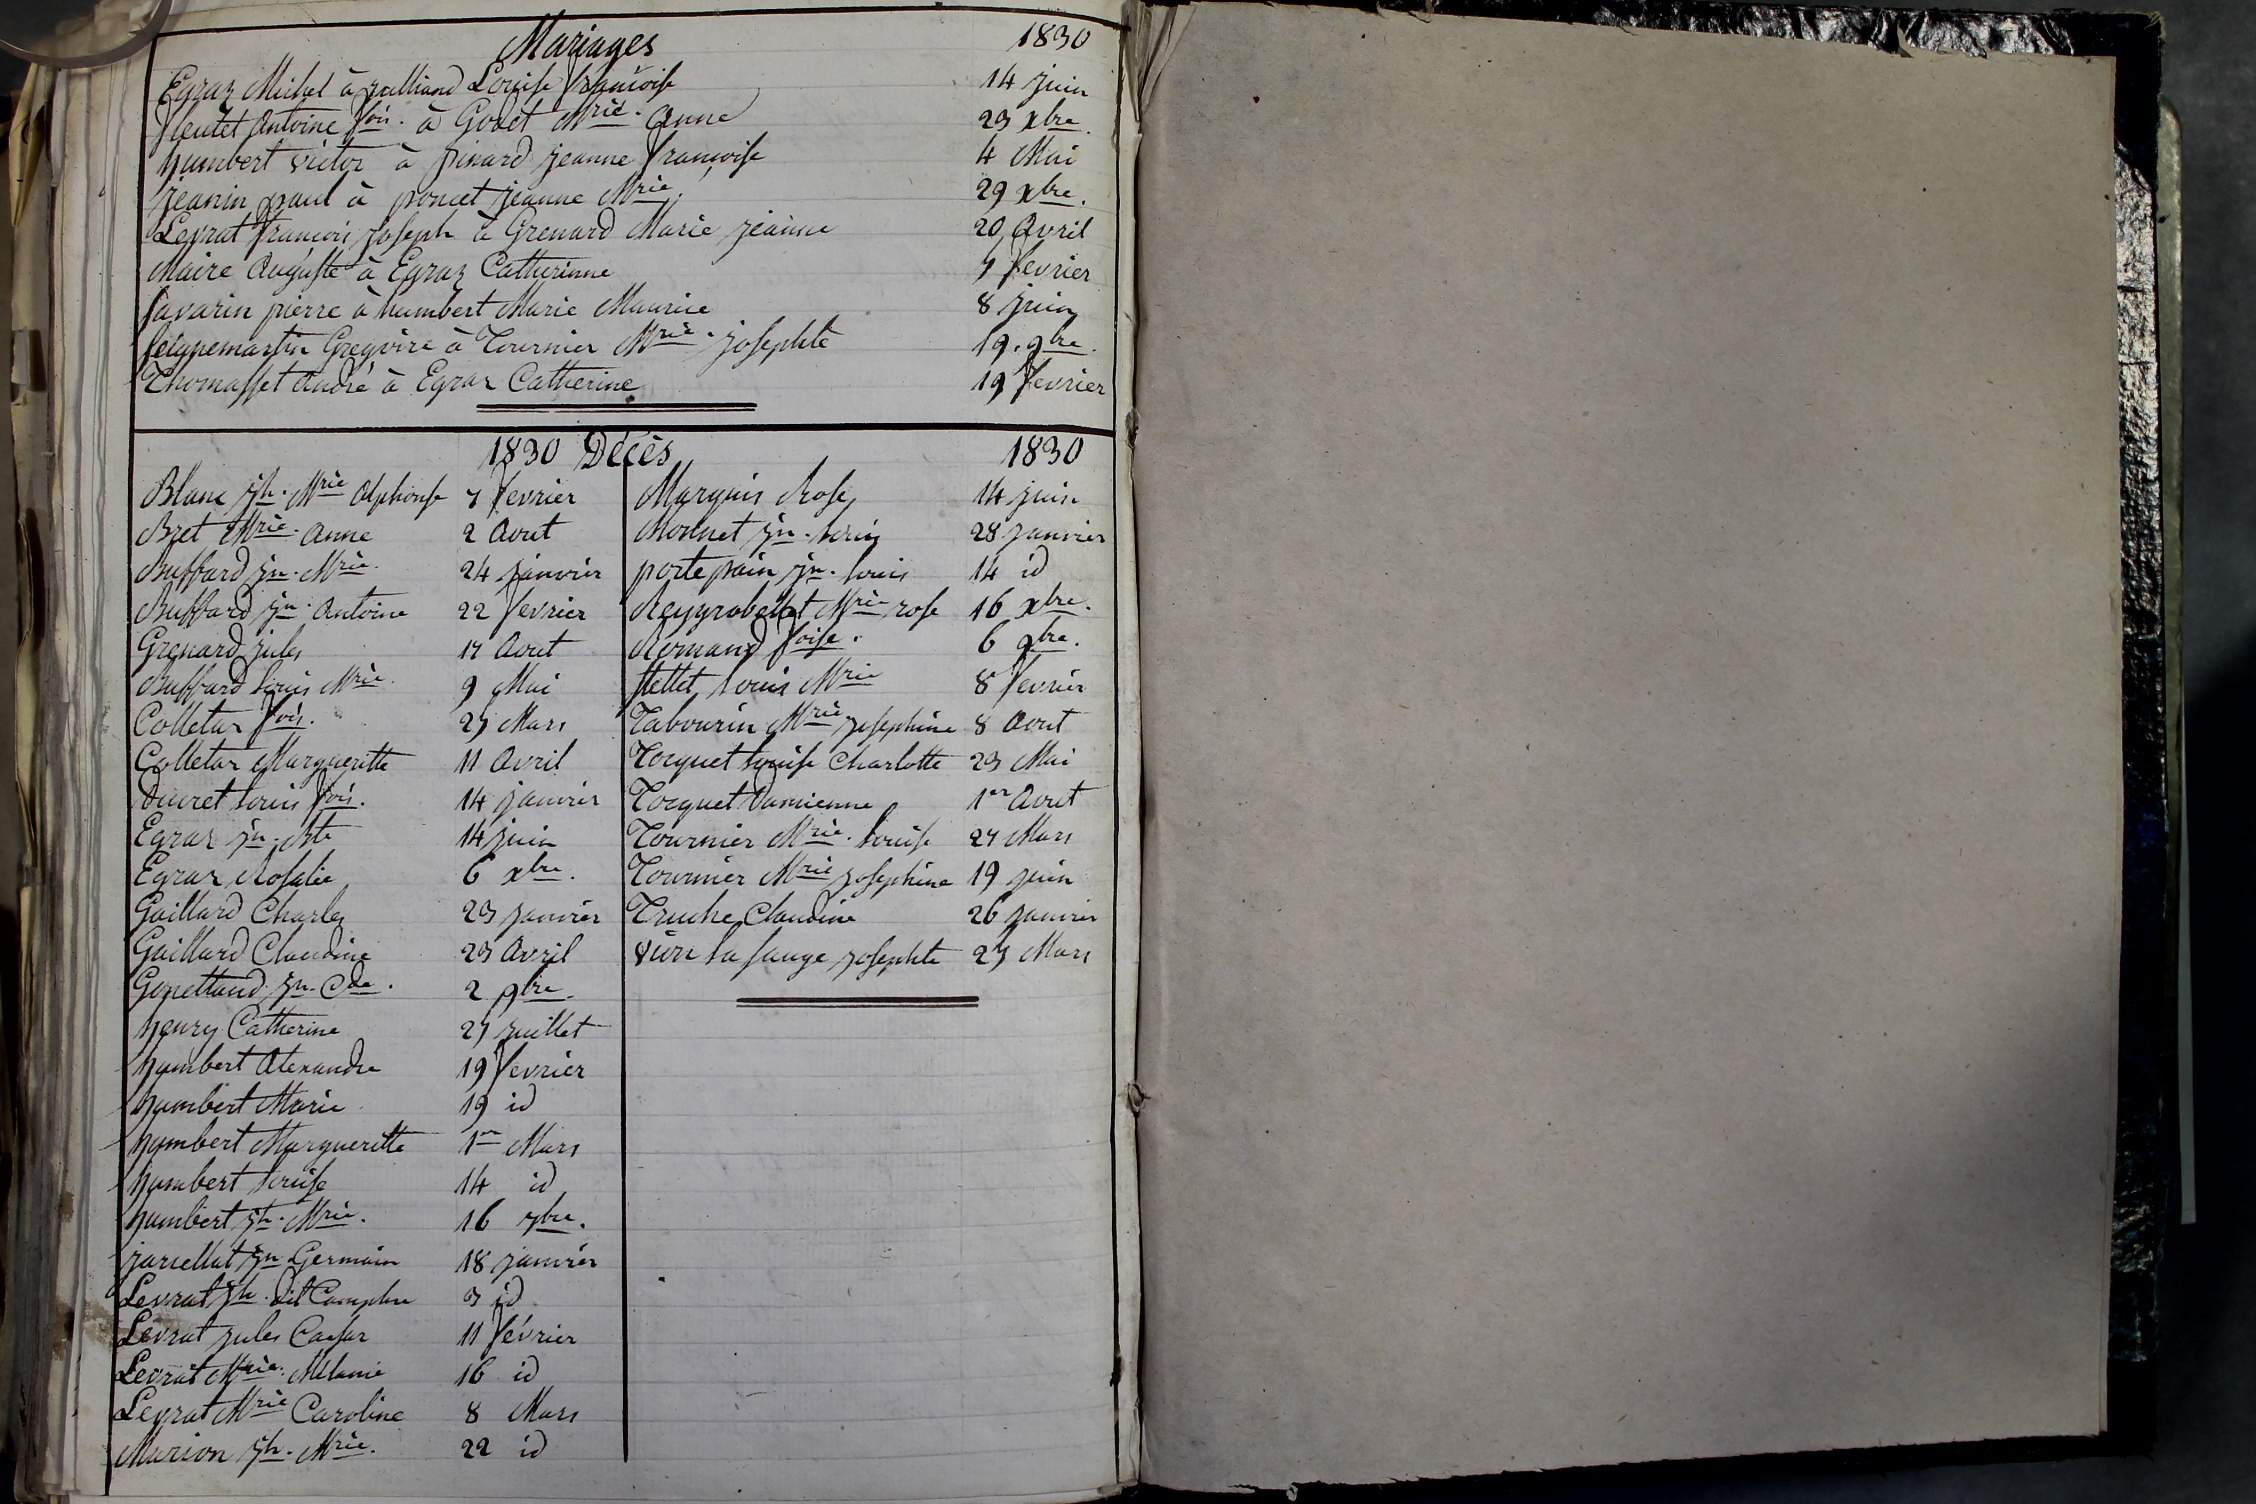 Mariages 1830
Egraz Michel à Louise françoise 14 juin
Antoine fois. à Godet Mrie. Anne 23 xbre.
humbert victor à pinard jeanne françoise 4 Mai
jeanin paul à poncet jeanne Mrie. 29 xbre.
Levrat françois joseph à Grenard Marie jeanne 20 Avril
Maire Auguste à Egraz Catherinne 7 fevrier
Savarin pierre à humbert Marie Maurice 8 juin
Seignemartin Gregoire à Tournier Mrie. josephte 19. 9bre.
Thomasset André à Egraz Catherine 19 fevrier
1830 Décès 1830
Blanc jh. Mrie Alphonse 7 fevrier
Bret Mrie. Anne 2 Aout
Buffard jn. Mrie. 24 janvier
Buffard jn. Antoine 22 fevrier
Grenard jules 17 Aout
Buffard louis Mrie. 9 Mai
Colletaz fois. 27 Mars
Colletaz Margueritte 11 Avril
Ducret louis fois. 14 janvier
Egraz jn. Bte 14 juin
Egraz Rosalie 6 xbre.
Gaillard Charles 23 janvier
Gaillard Claudine 23 Avril
Gonettand jn. Cde. 2 9bre.
henry Catherine 27 juillet
humbert Alexandre 19 fevrier
humbert Marie 19 id
humbert Margueritte 1er Mars
humbert louise 14 id
humbert jh. Mrie. 16 7bre.
jarcellat jn Germain 18 janvier
Levrat jh. dit 3 id
Levrat jules Caesar 11 février
Levrat Mrie. Mélanie 16 id
Levrat Mrie Caroline 8 Mars
Marion jh. Mrie. 22 id
Marquis Rose 14 juin
Monnet jn. louis 28 janvier
portepain jn. louis 14 id
Reygrobellet Mrie rose 16 xbre.
Romand foise. 6 9bre.
louis Mrie 8 fevrier
Tabourin Mrie josephine 8 Aout
Tocquet louise Charlotte 23 Mai
Tocquet Damienne 1er Aout
Tournier Mrie. louise 27 Mars
Tournier Mrie josephine 19 juin
Truche Claudine 26 janvier
josephte 27 Mars